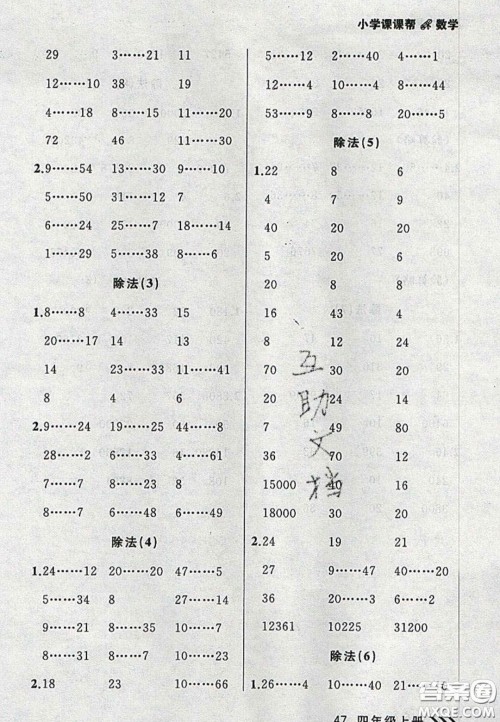 小学课课帮 数学
29 3……21 11
12……10 38 19
4……18 8……15 11……20
72 46 11……38
2.9……54 13……30 9……10
5……50 31……7 6……51
6……24 25……5 50……8
1……29 35……50 8……6
除法(3)
1.8……8 4……33 15
20……17 8……13 4
14 23……33 8……41
8 4 8……8
2.9……24 19……22 44……6
28……7 6……33 4……8
7……7 4……8 3……51
8……7 8……23 7……8
除法(4)
1.24……12 20……20 47……5
5……34 5……8 23
5……27 9……14
4……34 8
18……23 10……7
2.18 34 10……66
12 10……4 40……4
53……9 8……8 20
除法(5)
1.22 8 6
4 8 7
40 20 5
20 5 9
280 43 8
16 4 4
8 12 9
70 30 20
20 24 14
7 40 9
36 70 8
15000 40 16
18000 30 20
2.24 19 21
27 36 9……7
20……6 2……6 20……4
12361 10225 31200
除法(6)
1.26……4 21
互助文档
47 四年级上册
答案圈
MXQE.COM